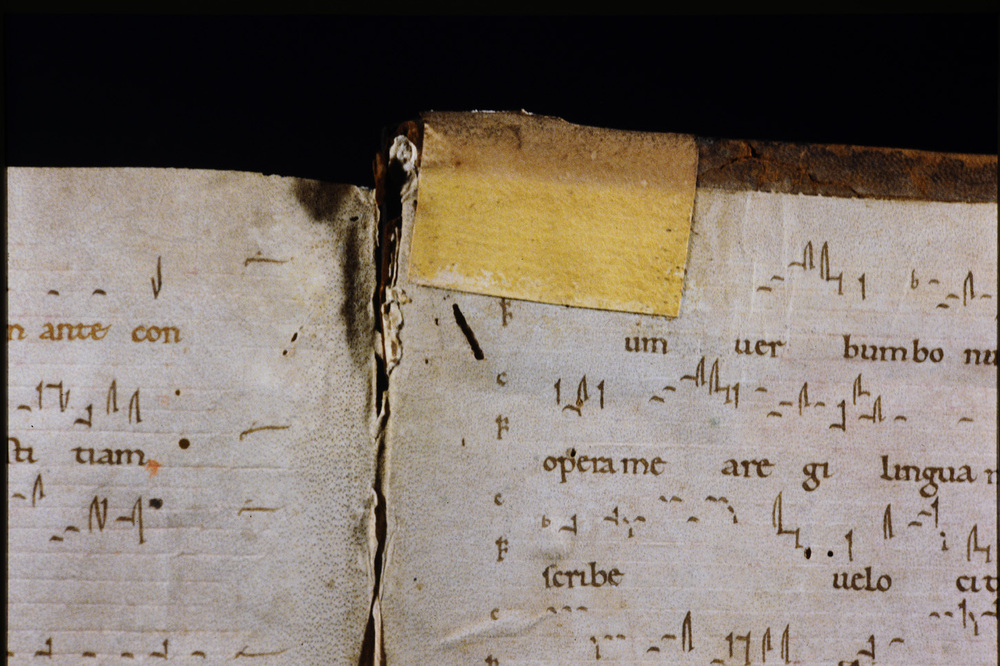 n ante con
sti tiam
um uer bumbo nu
opera me are gi lingua
scribe uelo cit